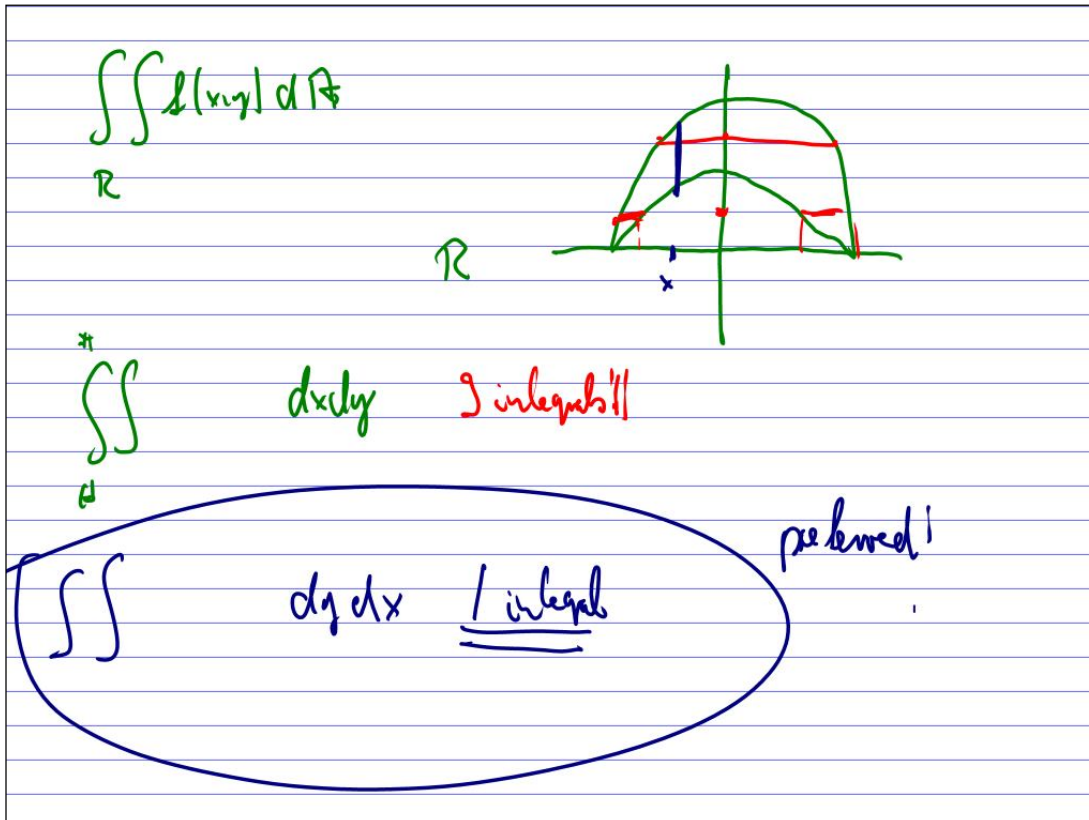 ∫∫ f(x,y) dA
R
R
x
*
∫∫ dxdy integrals!!
∫∫ dy dx 1 integral
preferred!